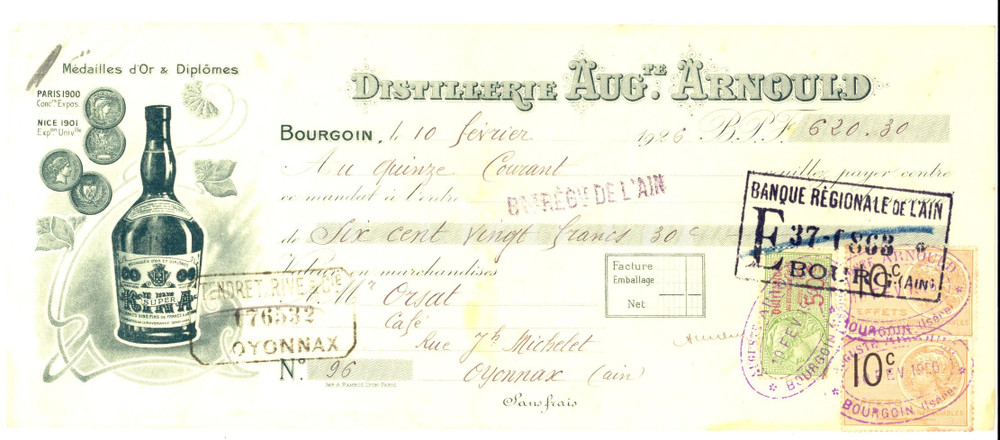 Médailles d'Or & Diplômes
PARIS 1900
NICE 1901
DISTILLERIE AUG.TE ARNOULD
BOURGOIN, le 10 février 1926 B.P.F. 620.30
Au quinze Courant veuillez payer contre
ce mandat à l'ordre
BQUE RÉGLE DE L'AIN
de Six cent vingt francs 30 c
Valeur en marchandises
Mr Orsat
Café
Rue Jh Michelet
Oyonnax (ain)
N° 96
Sans frais
Facture
Emballage
Net
SUPER
KINA
TENDRET, RIVE & CIE
176532
OYONNAX
BANQUE RÉGIONALE DE L'AIN
E 37-1863
BOURG (AIN)
10c
EFFETS
ARNOULD
BOURGOIN (Isère)
10c
BOURGOIN (Isère)
BOURGOIN